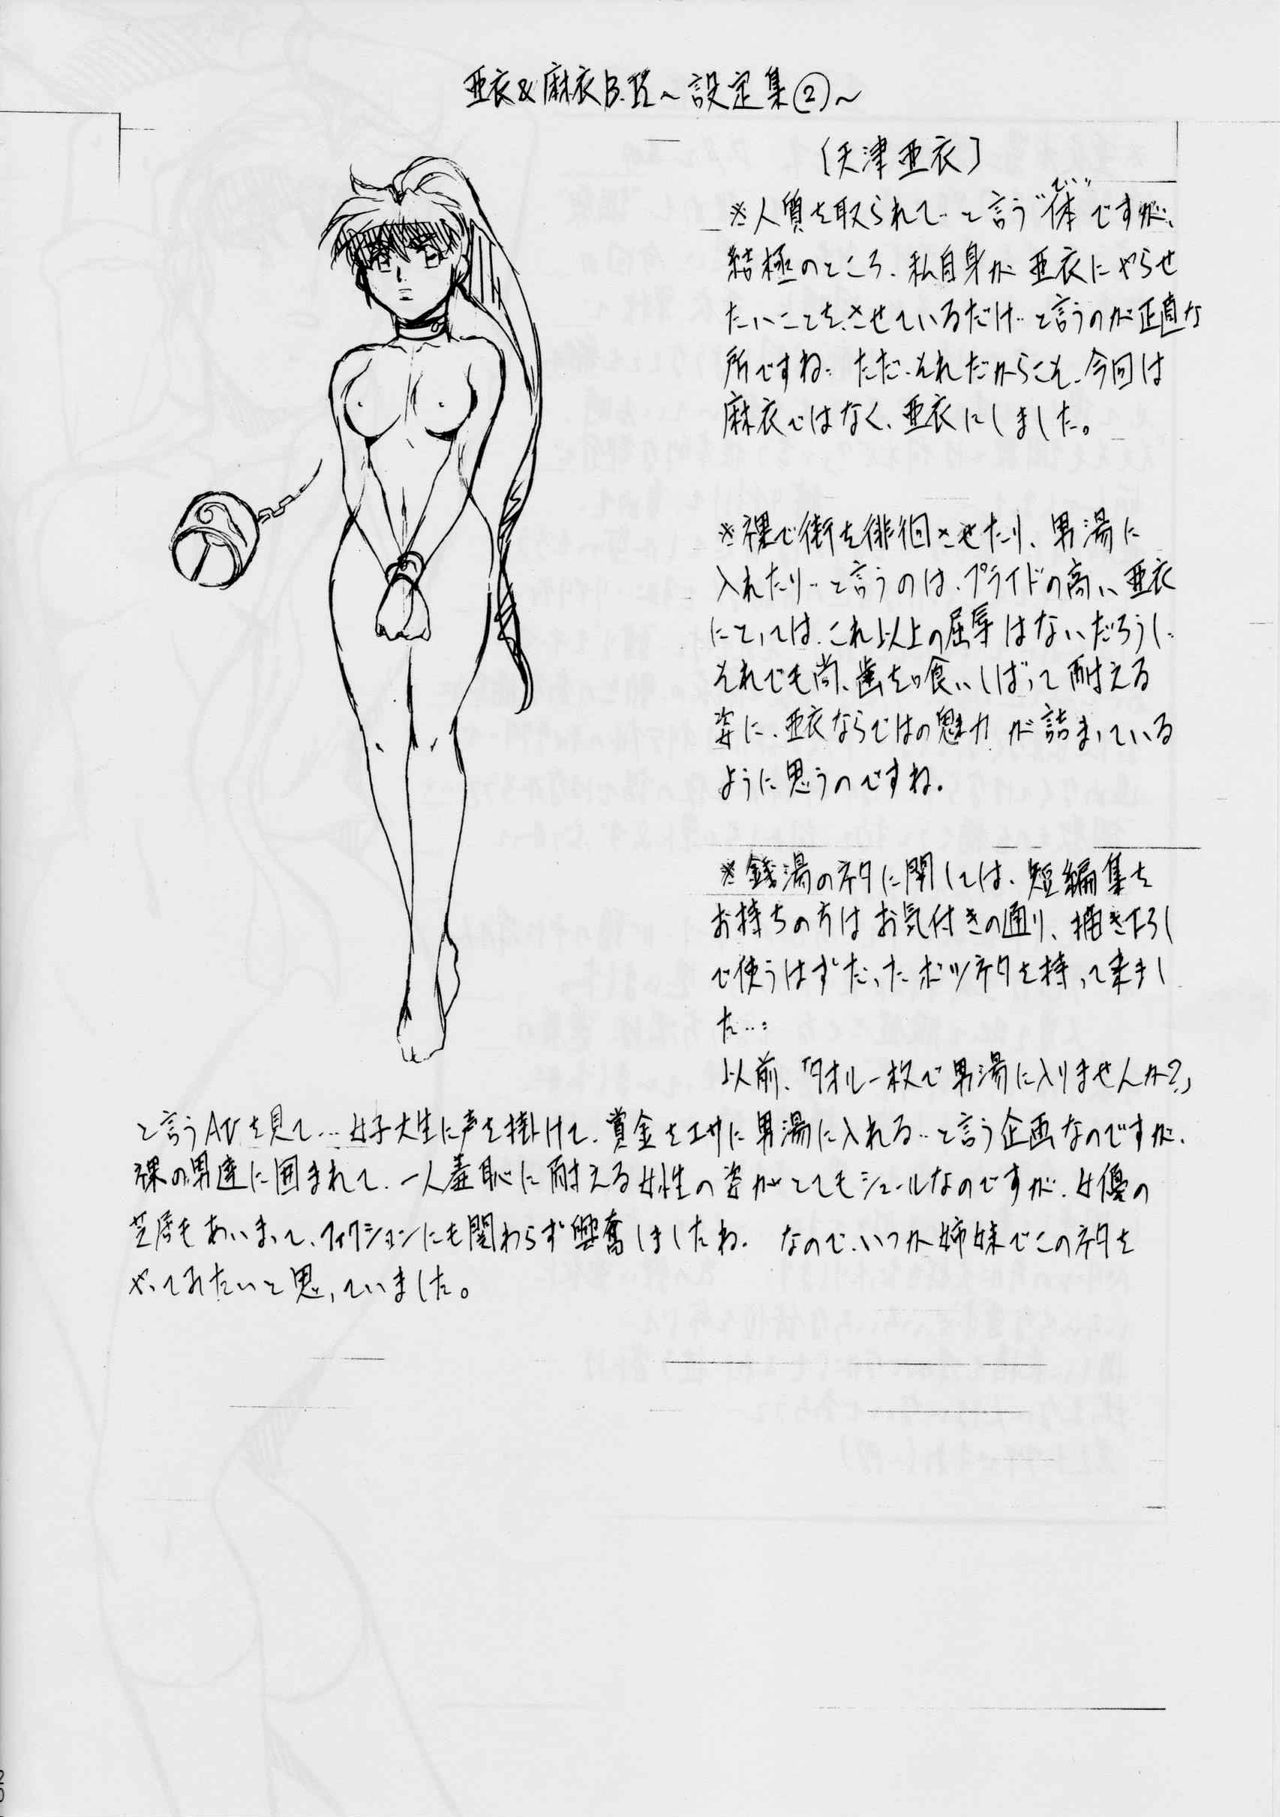 亜衣&麻衣B.R.～設定集②～
〔天津亜衣〕
※人質を取られて…と言う"体"ですが、
てい
結極のところ、私自身が亜衣にやらせ
たいことを、させているだけ…と言うのが正直な
所ですね… ただ、それだからこそ、今回は
麻衣ではなく、亜衣にしました。
※裸で街を徘徊させたり、男湯に
入れたり…と言うのは、プライドの高い亜衣
にとっては、これ以上の屈辱はないだろうし、
それでも尚、歯を喰いしばって耐える
姿に、亜衣ならではの魅力が詰まっている
ように思うのですね。
※銭湯のネタに関しては、短編集を
お持ちの方はお気付きの通り、描き下ろし
で使うはずだったボツネタを持って来まし
た…
以前、「タオル一枚で男湯に入りませんか?」
と言うAVを見て…女子大生に声を掛けて、賞金をエサに男湯に入れる…と言う企画なのですが、
裸の男達に囲まれて、一人羞恥に耐える女性の姿がとてもシュールなのですが、女優の
芝居もあいまって、フィクションにも関わらず興奮しましたね。 なので、いつか姉妹でこのネタを
やってみたいと思っていました。